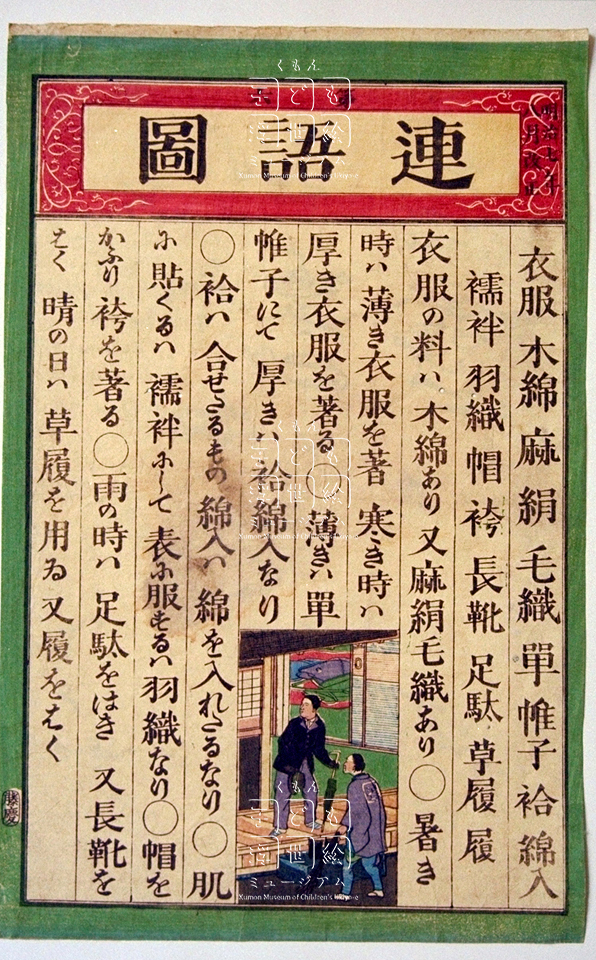 明治七年
八月改正
連語圖
衣服 木綿 麻 絹 毛織 單 帷子 袷 綿入
襦袢 羽織 帽 袴 長靴 足駄 草履 履
衣服の料ハ 木綿あり 又麻絹毛織あり 〇 暑き
時ハ 薄き衣服を著 寒き時ハ
厚き衣服を著る〇薄きハ 單
帷子にて 厚きハ 袷綿入なり
〇袷ハ 合せたるもの 綿入ハ 綿を入れたるなり〇肌
に貼くるハ 襦袢にして 表に服するハ 羽織なり〇帽を
かふり 袴を著る〇雨の時ハ 足駄をはき 又長靴を
はく 晴の日ハ 草履を用ゐ 又履をはく
くもん
子ども
浮世絵
ミュージアム
Kumon Museum of Children's Ukiyo-e
くもん
子ども
浮世絵
ミュージアム
Kumon Museum of Children's Ukiyo-e
くもん
子ども
浮世絵
ミュージアム
Kumon Museum of Children's Ukiyo-e